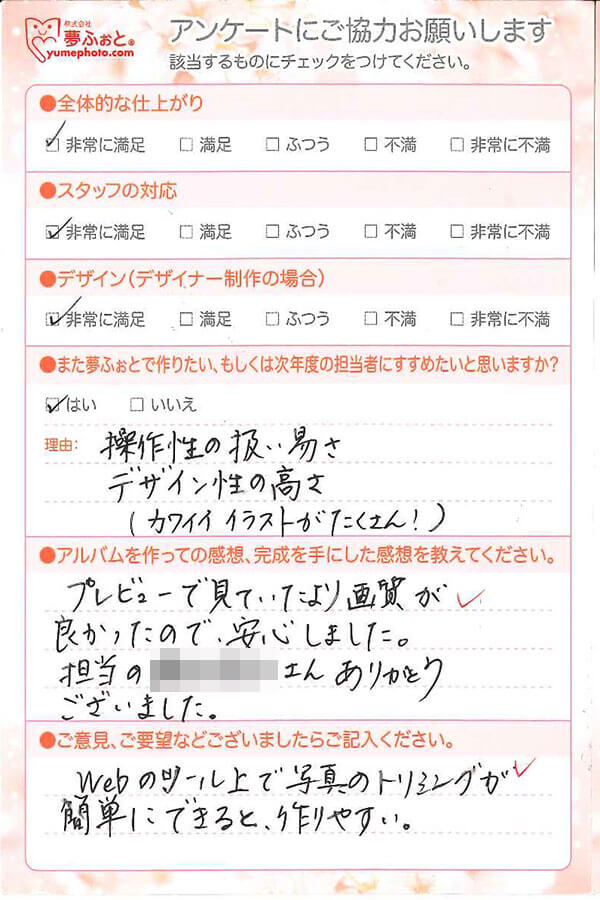 株式会社
夢ふぉと®
yumephoto.com
アンケートにご協力お願いします
該当するものにチェックをつけてください。
●全体的な仕上がり
☑ 非常に満足 □ 満足 □ ふつう □ 不満 □ 非常に不満
●スタッフの対応
☑ 非常に満足 □ 満足 □ ふつう □ 不満 □ 非常に不満
●デザイン(デザイナー制作の場合)
☑ 非常に満足 □ 満足 □ ふつう □ 不満 □ 非常に不満
●また夢ふぉとで作りたい、もしくは次年度の担当者にすすめたいと思いますか?
☑ はい □ いいえ
理由: 操作性の扱い易さ
デザイン性の高さ
(カワイイイラストがたくさん!)
●アルバムを作っての感想、完成を手にした感想を教えてください。
プレビューで見ていたより画質が
良かったので、安心しました。
担当の さんありがとう
ございました。
●ご意見、ご要望などございましたらご記入ください。
Webのツール上で写真のトリミングが
簡単にできると、作りやすい。